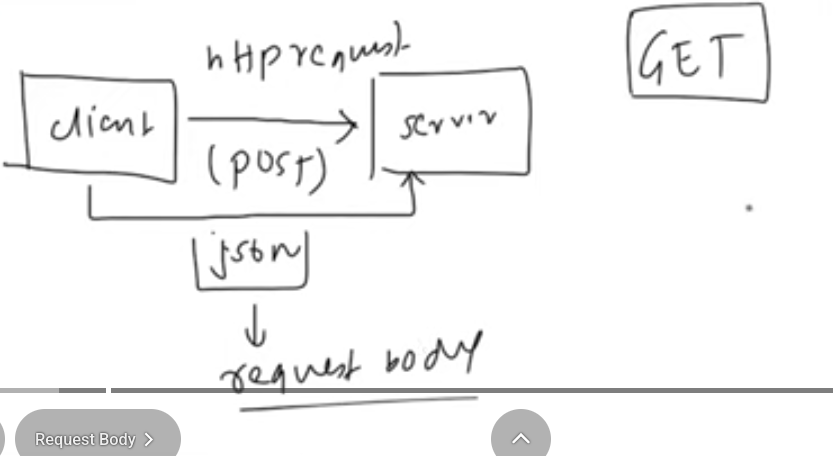 http request
GET
client
server
(POST)
json
request body
Request Body